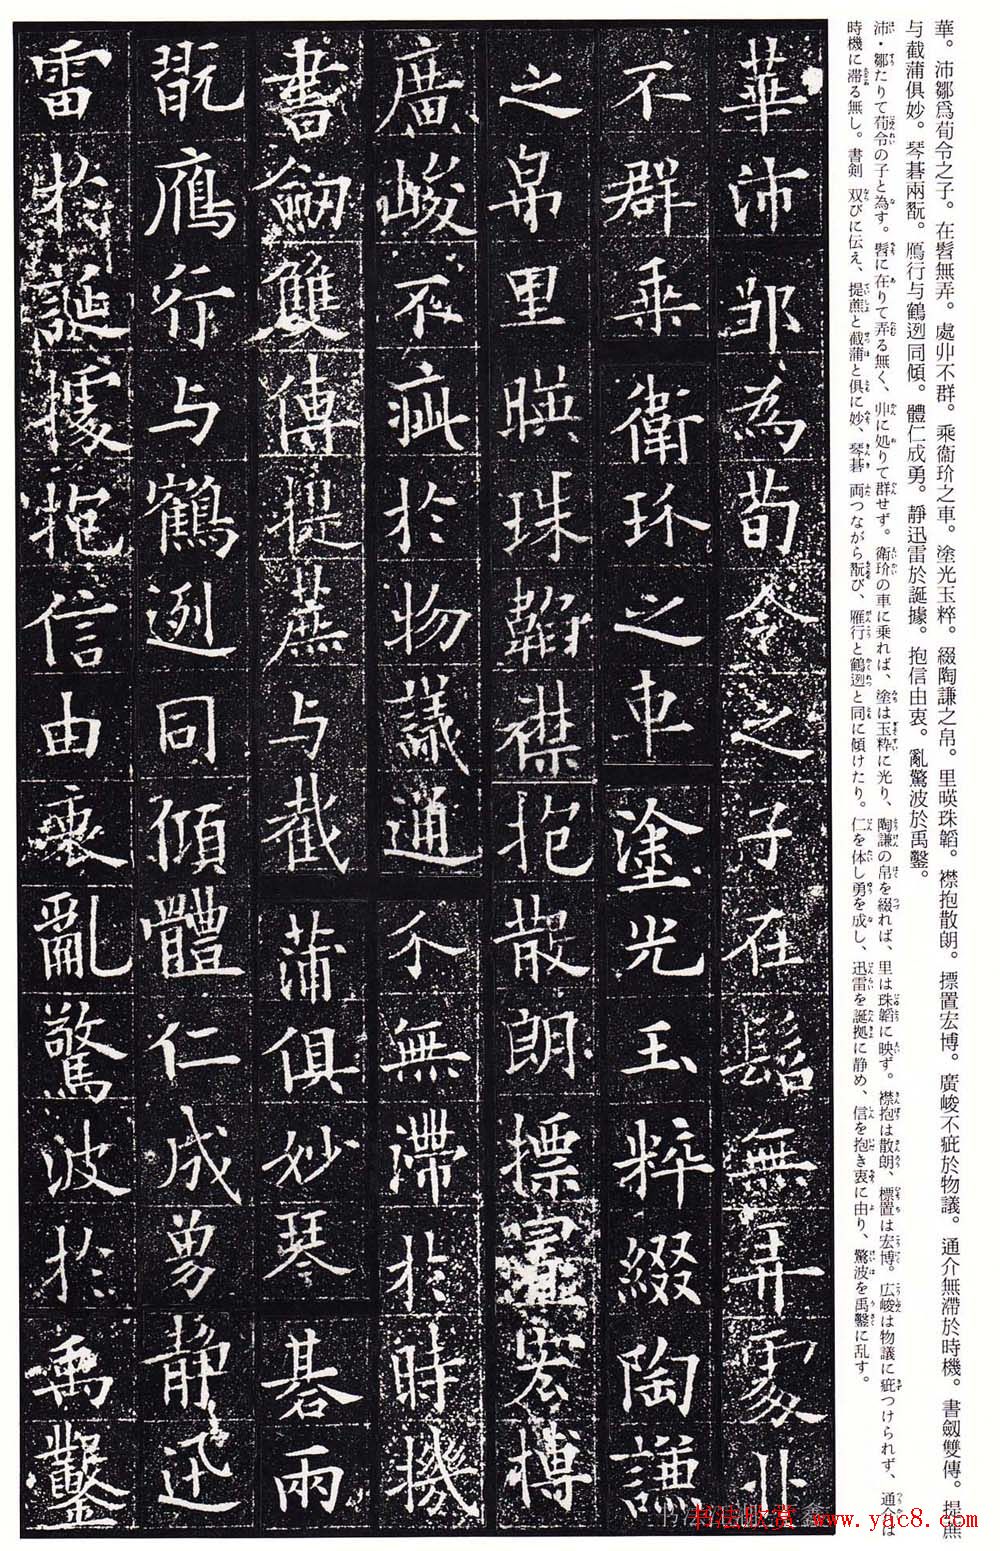 華。沛鄒爲荀令之子。在髫無弄。處丱不群。乘衞玠之車。塗光玉粹。綴陶謙之帛。里暎珠韜。襟抱散朗。摽置宏博。廣峻不疵於物議。通介無滯於時機。書劔雙傳。提蕉
与截蒲俱妙。琴碁兩翫。鴈行与鶴迾同傾。體仁成勇。靜迅雷於誕據。抱信由衷。亂驚波於禹鑿。
沛・鄒たりて荀令の子と為す。髫に在りて弄る無く、丱に処りて群せず。衛玠の車に乗れば、塗は玉粋に光り、陶謙の帛を綴れば、里は珠韜に映ず。襟抱は散朗、標置は宏博。広峻は物議に疵つけられず、通介は
時機に滞る無し。書剣双びに伝え、提蕉と截蒲と俱に妙、琴碁両つながら翫び、雁行と鶴迾と同に傾けたり。仁を体し勇を成し、迅雷を誕拠に静め、信を抱き衷に由り、驚波を禹鑿に乱す。
華沛邹為荀令之子在髫無弄處丱
不群乗衞玠之車塗光玉粹綴陶謙
之帛里暎珠韜襟抱散朗摽置宏博
廣峻不疵於物議通介無滯於時機
書劔雙傳提蕉与截蒲俱妙琴碁兩
翫鴈行与鶴迾同傾體仁成勇靜迅
雷於誕據抱信由衷亂驚波於禹鑿
书法欣赏 www.yac8.com